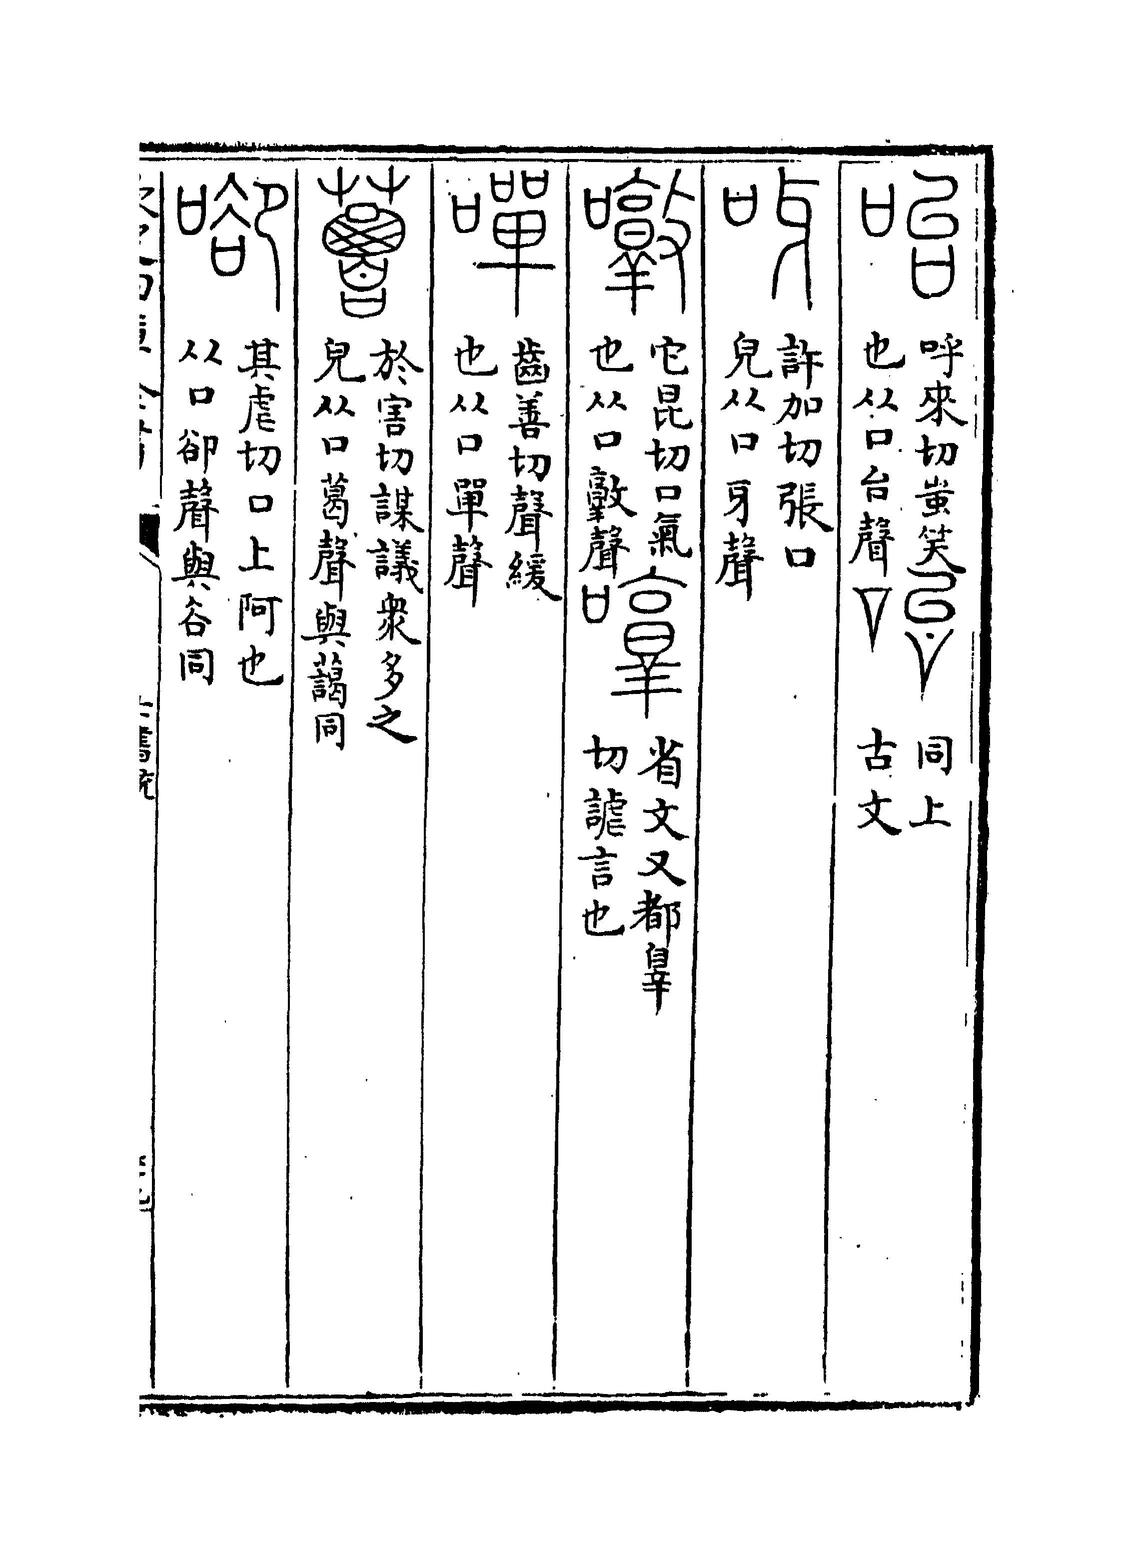 咍 呼來切蚩笑
也从口台聲
同上
古文
呀 許加切張口
皃从口牙聲
噋 它昆切口氣
也从口𦎫聲
啍 省文又都𦎫
切謔言也
嘽 齒善切聲緩
也从口單聲
於害切謀議衆多之
皃从口葛聲與藹同
其虐切口上阿也
从口卻聲與谷同
欽定四庫全書
六書統